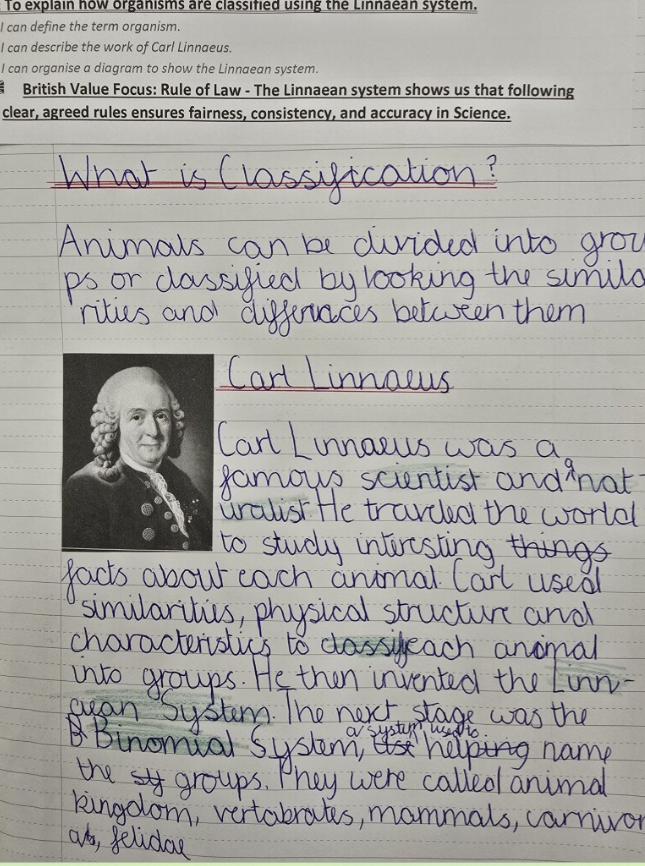 To explain how organisms are classified using the Linnaean system.
I can define the term organism.
I can describe the work of Carl Linnaeus.
I can organise a diagram to show the Linnaean system.
British Value Focus: Rule of Law - The Linnaean system shows us that following
clear, agreed rules ensures fairness, consistency, and accuracy in Science.
What is Classification?
Animals can be divided into grou
ps or classified by looking the simila
rities and differnaces between them
Carl Linnaeus
Carl Linnaeus was a
famous scientist and a nat-
uralist. He traveled the world
to study interesting things
facts about each animal. Carl used
similarities, physical structure and
characteristics to classify each animal
into groups. He then invented the Linn-
aean System. The next stage was the
B Binomial System, a system used to helping name
the sy groups. They were called animal
kingdom, vertabrates, mammals, carnivor
felidae